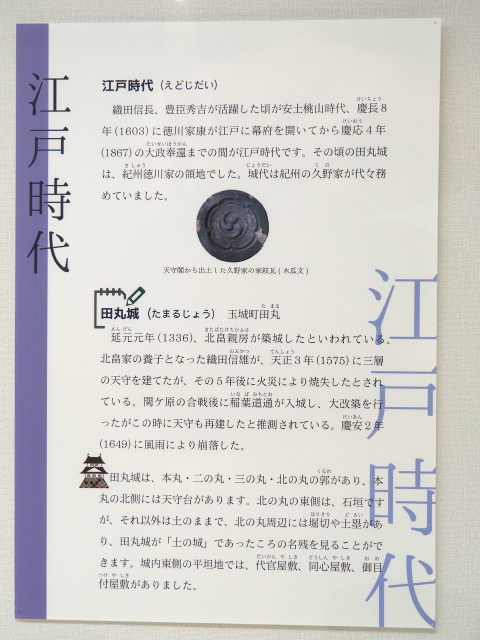 江戸時代
江戸時代（えどじだい）
けいちょう
織田信長、豊臣秀吉が活躍した頃が安土桃山時代、慶長8
けいおう
年(1603)に徳川家康が江戸に幕府を開いてから慶応4年
たいせいほうかん
(1867)の大政奉還までの間が江戸時代です。その頃の田丸城
きしゅう じょうだい くの
は、紀州徳川家の領地でした。城代は紀州の久野家が代々務
めていました。
天守閣から出土した久野家の家紋瓦(木瓜文)
たまる
田丸城（たまるじょう） 玉城町田丸
えんげん きたばたけちかふさ
延元元年(1336)、北畠親房が築城したといわれている。
のぶかつ てんしょう
北畠家の養子となった織田信雄が、天正3年(1575)に三層
の天守を建てたが、その5年後に火災により焼失したとされ
いなばみちとお
ている。関ケ原の合戦後に稲葉道通が入城し、大改築を行
けいあん
ったがこの時に天守も再建したと推測されている。慶安2年
(1649)に風雨により崩落した。
くるわ
田丸城は、本丸・二の丸・三の丸・北の丸の郭があり、本
丸の北側には天守台があります。北の丸の東側は、石垣です
ほりきり どるい
が、それ以外は土のままで、北の丸周辺には堀切や土塁があ
り、田丸城が「土の城」であったころの名残を見ることがで
だいかんやしき どうしんやしき おめ
きます。城内東側の平坦地では、代官屋敷、同心屋敷、御目
つけやしき
付屋敷がありました。
江戸時代